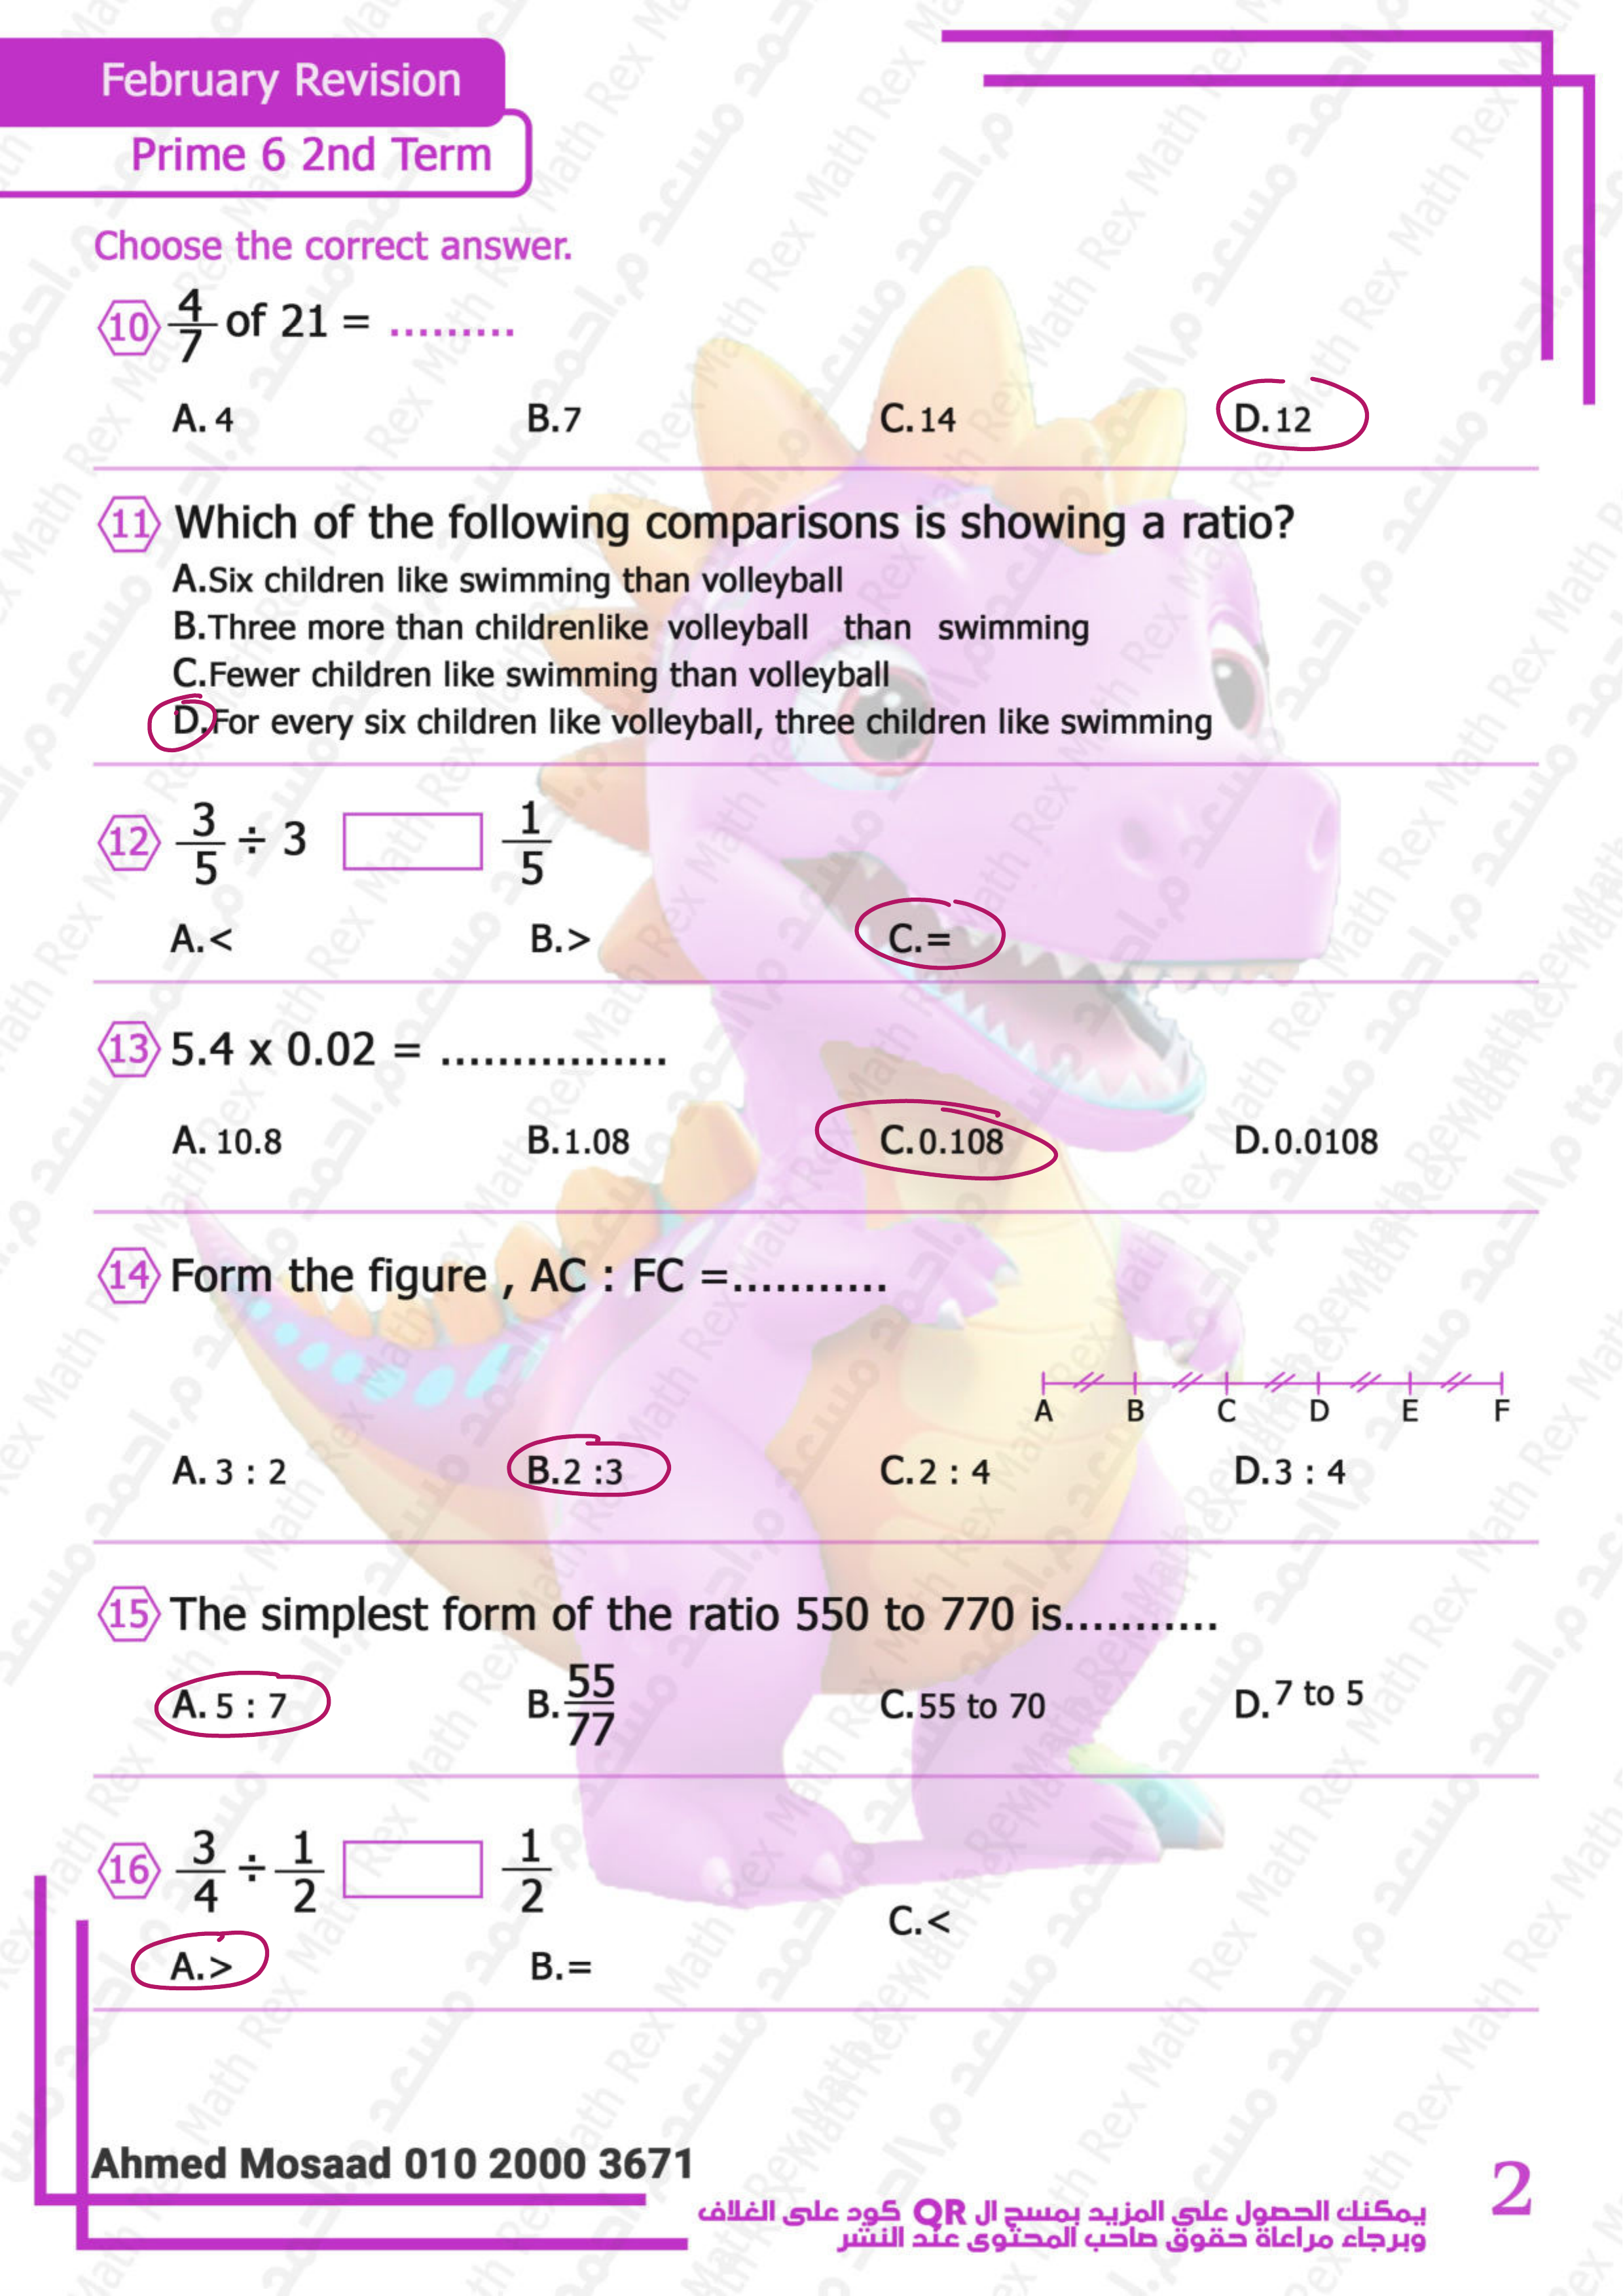 February Revision
Prime 6 2nd Term
Choose the correct answer.
10 4/7 of 21 = .........
A. 4 B.7 C.14 D.12
11 Which of the following comparisons is showing a ratio?
A.Six children like swimming than volleyball
B.Three more than childrenlike volleyball than swimming
C.Fewer children like swimming than volleyball
D.For every six children like volleyball, three children like swimming
12 3/5 ÷ 3 1/5
A.< B.> C.=
13 5.4 x 0.02 = ................
A. 10.8 B.1.08 C.0.108 D.0.0108
14 Form the figure , AC : FC =...........
A B C D E F
A. 3 : 2 B.2 :3 C.2 : 4 D.3 : 4
15 The simplest form of the ratio 550 to 770 is...........
A. 5 : 7 B. 55/77 C.55 to 70 D. 7 to 5
16 3/4 ÷ 1/2 1/2
A.> B.= C.<
Ahmed Mosaad 010 2000 3671
يمكنك الحصول على المزيد بمسح ال QR كود على الغلاف
وبرجاء مراعاة حقوق صاحب المحتوى عند النشر
2
Math Rex م.احمد مسعد